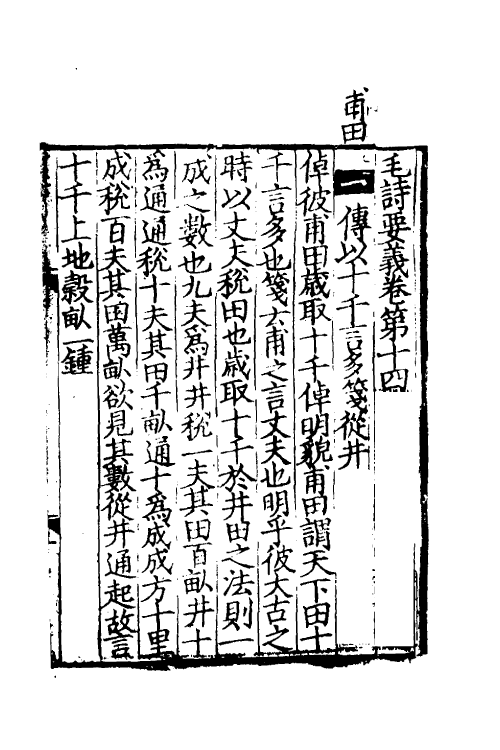 甫田
毛詩要義卷第十四
一 傳以十千言多箋從井
倬彼甫田歲取十千倬明貌甫田謂天下田十
千言多也箋云甫之言丈夫也明乎彼大古之
時以丈夫稅田也歲取十千於井田之法則一
成之數也九夫爲井井稅一夫其田百畝井十
爲通通稅十夫其田千畝通十爲成成方十里
成稅百夫其田萬畝欲見其數從井通起故言
十千上地穀畝一鍾